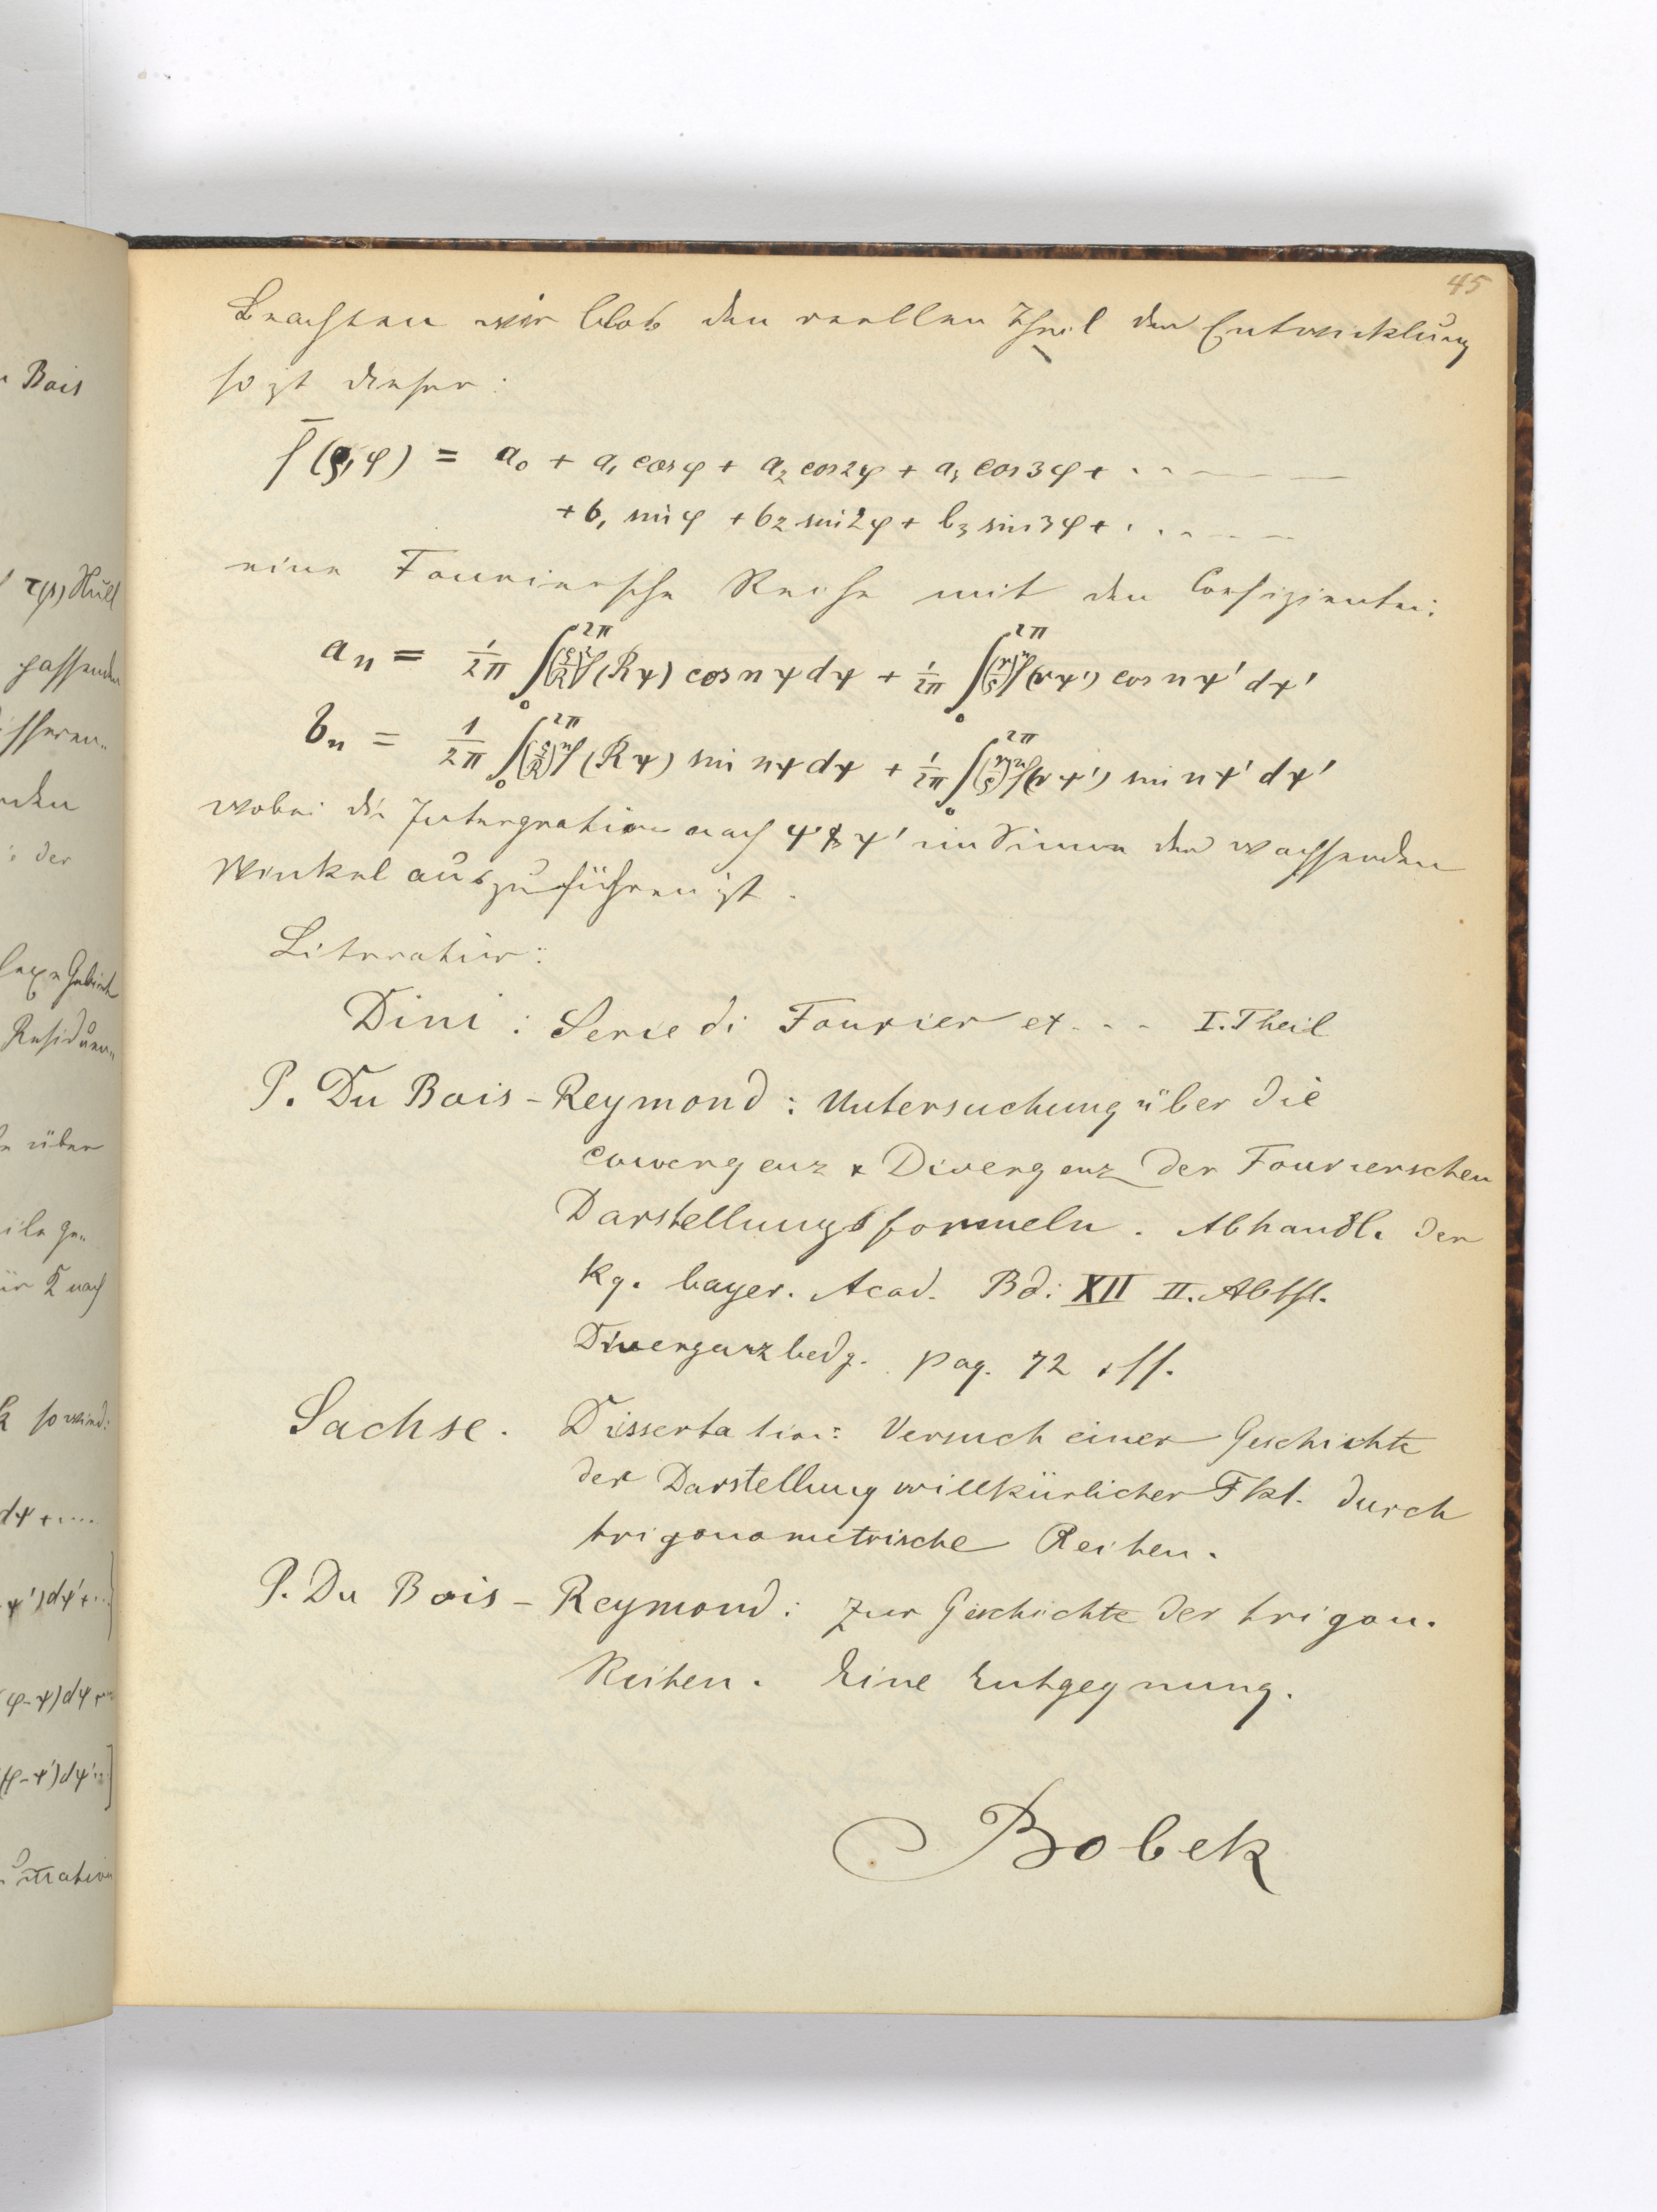 45
Beachten wir blos den reellen Theil der Entwicklung
so ist dieser:
f̄(ρ,φ) = a₀ + a₁ cosφ + a₂ cos2φ + a₃ cos3φ + · · – – –
+ b₁ sinφ + b₂ sin2φ + b₃ sin3φ + · · – – –
eine Fouriersche Reihe mit den Coefizienten:
aₙ = 1/2π ∫₀^2π (ρ/R)ⁿ f(Rψ) cos nψ dψ + 1/2π ∫₀^2π (r/ρ)ⁿ f(rψ') cos nψ' dψ'
bₙ = 1/2π ∫₀^2π (ρ/R)ⁿ f(Rψ) sin nψ dψ + 1/2π ∫₀^2π (r/ρ)ⁿ f(rψ') sin nψ' dψ'
wobei die Intergration nach ψ & ψ' im Sinne der wachsenden
Winkel auszuführen ist.
Literatur:
Dini : Serie di Fourier et - - - I. Theil
P. Du Bois-Reymond : Untersuchung über die
Convergenz & Divergenz der Fourierschen
Darstellungsformeln. Abhandl. der
kg. bayer. Acad. Bd: XII II. Abthl.
Divergenzbedg. pag. 72 ff.
Sachse. Dissertation: Versuch einer Geschichte
der Darstellung willkürlicher Fkt. durch
trigonometrische Reihen.
P. Du Bois-Reymond: Zur Geschichte der trigon.
Reihen. Eine Entgegnung.
Bobek
Bois
passenden
der
Residuen
über
so wird:
dψ + ....
ψ')dψ' + ..
(φ-ψ)dψ + ..
(φ-ψ')dψ' ..]